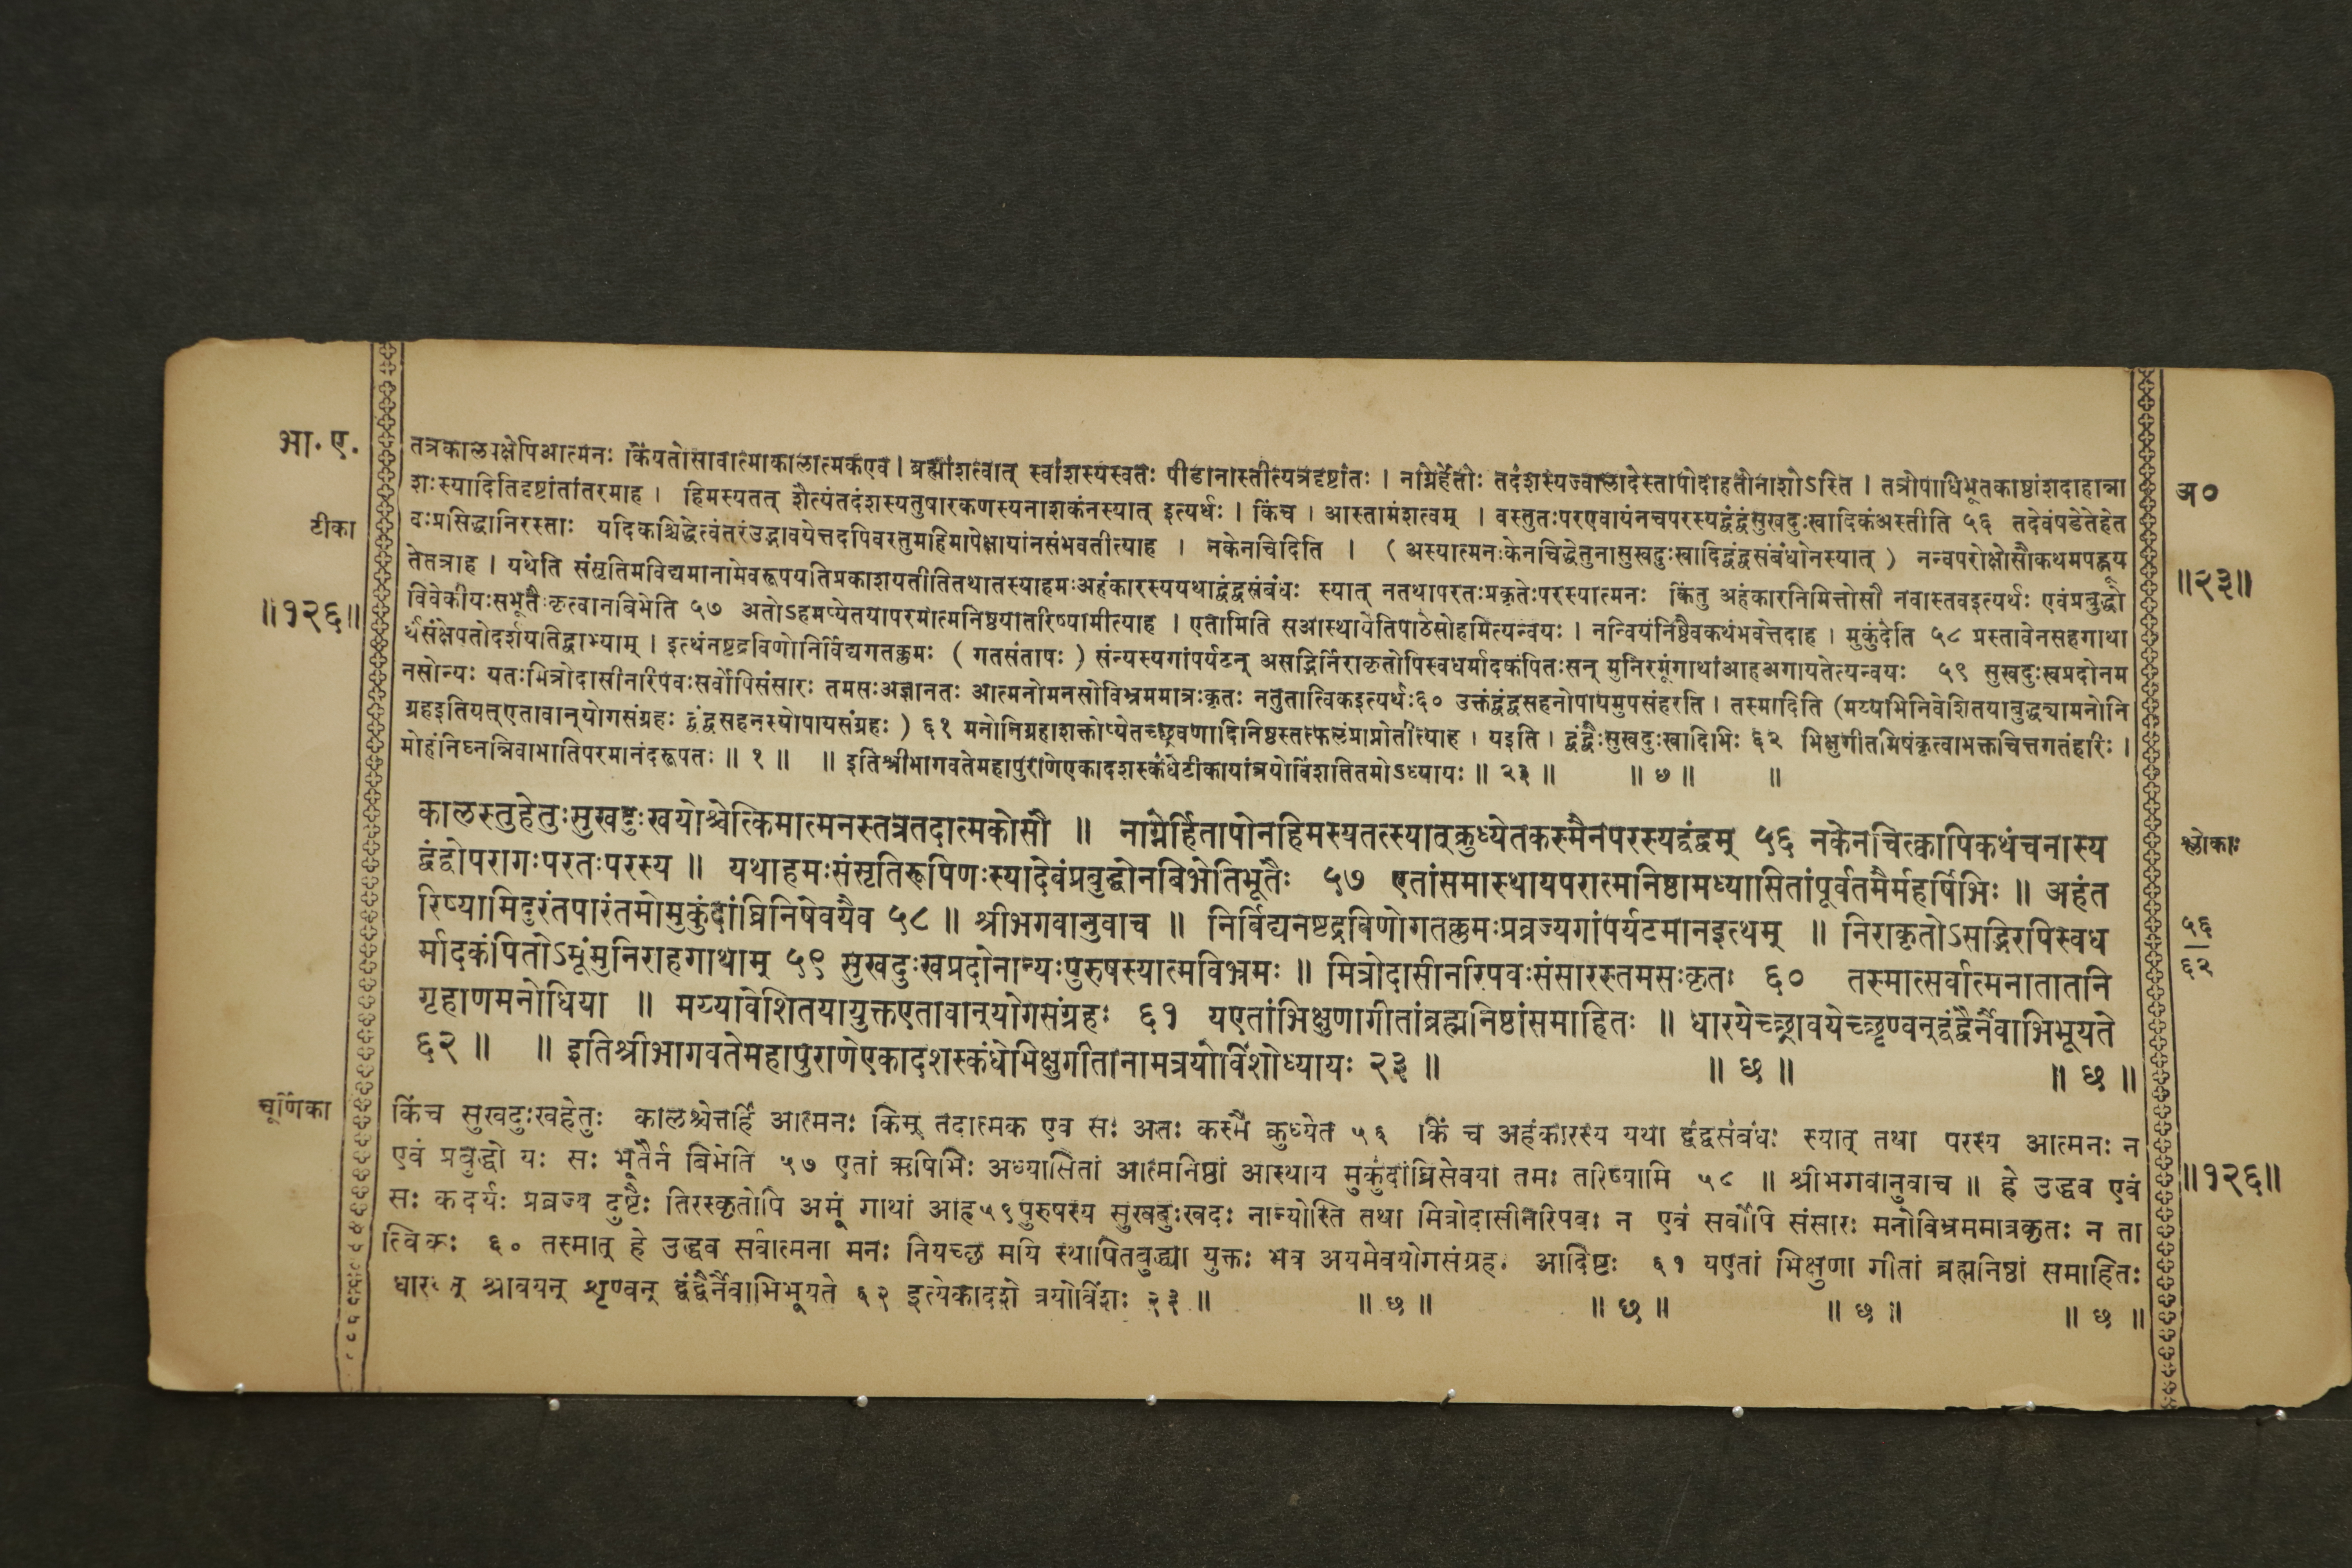 भा. ए.
टीका
॥१२६॥
तत्रकालपक्षेपिआत्मनः किंयतोसावात्माकालात्मकएव। ब्रह्मांशत्वात् स्वांशस्यस्वतः पीडानास्तीत्यत्रदृष्टांतः । नाग्नेर्हेतोः तदंशस्यज्वालादेस्तापोदाहतोनाशोऽस्ति । तत्रोपाधिभूतकाष्ठांशदाहान्ना
शःस्यादितिदृष्टांतांतरमाह । हिमस्यतत् शैत्यंतदंशस्यतुषारकणस्यनाशकंनस्यात् इत्यर्थः । किंच । आस्तामंशत्वम् । वस्तुतःपरएवायंनचपरस्यद्वंद्वंसुखदुःखादिकंअस्तीति ५६ तदेवंषडेतेहेत
वःप्रसिद्धानिरस्ताः यदिकश्चिद्धेत्वंतरंउद्भावयेत्तदपिवस्तुमहिमापेक्षायांनसंभवतीत्याह । नकेनचिदिति । ( अस्यात्मनःकेनचिद्धेतुनासुखदुःखादिद्वंद्वसंबंधोनस्यात् ) नन्वपरोक्षोसौकथमपह्नूय
तेतत्राह । यथेति संसृतिमविद्यमानामेवरूपयतिप्रकाशयतीतितथातस्याहमःअहंकारस्ययथाद्वंद्वसंबंधः स्यात् नतथापरतःप्रकृतेःपरस्यात्मनः किंतु अहंकारनिमित्तोसौ नवास्तवइत्यर्थः एवंप्रबुद्धो
विवेकीयःसभूतैःकृत्वानबिभेति ५७ अतोऽहमप्येतयापरमात्मनिष्ठयातरिष्यामीत्याह । एतामिति सआस्थायेतिपाठेसोहमित्यन्वयः । नन्वियंनिष्ठैवकथंभवेत्तदाह । मुकुंदेति ५८ प्रस्तावेनसहगाथा
र्थसंक्षेपतोदर्शयतिद्वाभ्याम् । इत्थंनष्टद्रविणोनिर्विद्यगतक्लमः ( गतसंतापः ) संन्यस्यगांपर्यटन् असद्भिर्निराकृतोपिस्वधर्मादकंपितःसन् मुनिरमूंगाथांआहअगायतेत्यन्वयः ५९ सुखदुःखप्रदोनम
नसोन्यः यतःमित्रोदासीनारिपवःसर्वोपिसंसारः तमसःअज्ञानतः आत्मनोमनसोविभ्रममात्रःकृतः नतुतात्विकइत्यर्थः६० उक्तंद्वंद्वसहनोपायमुपसंहरति । तस्मादिति (मय्यभिनिवेशितयाबुद्ध्यामनोनि
ग्रहइतियत्एतावान्योगसंग्रहः द्वंद्वसहनस्योपायसंग्रहः ) ६१ मनोनिग्रहाशक्तोप्येतच्छ्रवणादिनिष्ठस्तत्फलंप्राप्नोतीत्याह । यइति । द्वंद्वैःसुखदुःखादिभिः ६२ भिक्षुगीतमिषंकृत्वाभक्तचित्तगतंहरिः ।
मोहंनिघ्नन्निवाभातिपरमानंदरूपतः ॥ १ ॥ ॥ इतिश्रीभागवतेमहापुराणेएकादशस्कंधेटीकायांत्रयोविंशतितमोऽध्यायः ॥ २३ ॥ ॥ ७ ॥ ॥
अ०
॥२३॥
कालस्तुहेतुःसुखदुःखयोश्चेत्किमात्मनस्तत्रतदात्मकोसौ ॥ नाग्नेर्हितापोनहिमस्यतत्स्यात्क्रुध्येतकस्मैनपरस्यद्वंद्वम् ५६ नकेनचित्क्वापिकथंचनास्य
द्वंद्वोपरागःपरतःपरस्य ॥ यथाहमःसंसृतिरूपिणःस्यादेवंप्रबुद्धोनबिभेतिभूतैः ५७ एतांसमास्थायपरात्मनिष्ठामध्यासितांपूर्वतमैर्महर्षिभिः ॥ अहंत
रिष्यामिदुरंतपारंतमोमुकुंदांघ्रिनिषेवयैव ५८ ॥ श्रीभगवानुवाच ॥ निर्विद्यनष्टद्रविणोगतक्लमःप्रव्रज्यगांपर्यटमानइत्थम् ॥ निराकृतोऽसद्भिरपिस्वध
र्मादकंपितोऽमूंमुनिराहगाथाम् ५९ सुखदुःखप्रदोनान्यःपुरुषस्यात्मविभ्रमः ॥ मित्रोदासीनरिपवःसंसारस्तमसःकृतः ६० तस्मात्सर्वात्मनातातनि
गृहाणमनोधिया ॥ मय्यावेशितयायुक्तएतावान्योगसंग्रहः ६१ यएतांभिक्षुणागीतांब्रह्मनिष्ठांसमाहितः ॥ धारयेच्छ्रावयेच्छृण्वन्द्वंद्वैर्नैवाभिभूयते
६२ ॥ ॥ इतिश्रीभागवतेमहापुराणेएकादशस्कंधेभिक्षुगीतानामत्रयोविंशोध्यायः २३ ॥ ॥ छ ॥ ॥ छ ॥
श्लोकाः
५६
६२
चूर्णिका
किंच सुखदुःखहेतुः कालश्चेत्तर्हि आत्मनः किम् तदात्मक एव सः अतः कस्मै क्रुध्येत ५६ किं च अहंकारस्य यथा द्वंद्वसंबंधः स्यात् तथा परस्य आत्मनः न
एवं प्रबुद्धो यः सः भूतैर्न बिभेति ५७ एतां ऋषिभिः अध्यासितां आत्मनिष्ठां आस्थाय मुकुंदांघ्रिसेवया तमः तरिष्यामि ५८ ॥ श्रीभगवानुवाच ॥ हे उद्धव एवं
सः कदर्यः प्रव्रज्य दुष्टैः तिरस्कृतोपि अमूं गाथां आह५९पुरुषस्य सुखदुःखदः नान्योस्ति तथा मित्रोदासीनरिपवः न एवं सर्वोपि संसारः मनोविभ्रममात्रकृतः न ता
त्विकः ६० तस्मात् हे उद्धव सर्वात्मना मनः नियच्छ मयि स्थापितबुद्ध्या युक्तः भव अयमेवयोगसंग्रहः आदिष्टः ६१ यएतां भिक्षुणा गीतां ब्रह्मनिष्ठां समाहितः
श्रावयन् शृण्वन् द्वंद्वैर्नैवाभिभूयते ६२ इत्येकादशे त्रयोविंशः २३ ॥ ॥ छ ॥ ॥ छ ॥ ॥ छ ॥ ॥ छ ॥
॥१२६॥